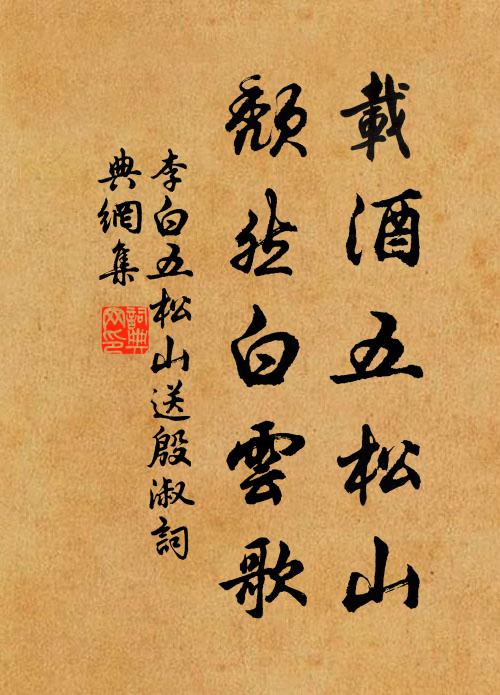 載酒五松山
頹然白雲歌
李白五松山送殷淑詞
典網集
詞典
网印